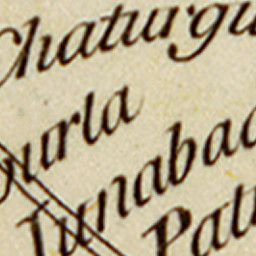 Chaturgu
urla
Junabad
Patt